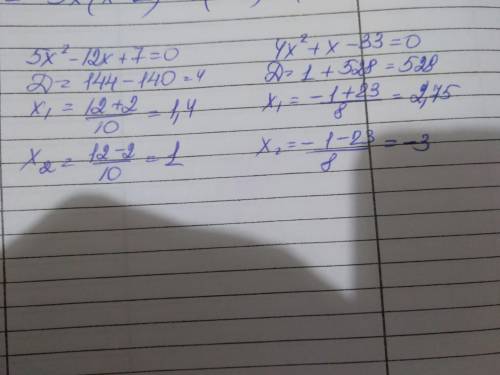 5x² - 12x + 7 = 0
D = 144 - 140 = 4
x₁ = (12 + 2)/10 = 1,4
x₂ = (12 - 2)/10 = 1
4x² + x - 33 = 0
D = 1 + 528 = 528
x₁ = (-1 + 23)/8 = 2,75
x₂ = (-1 - 23)/8 = -3